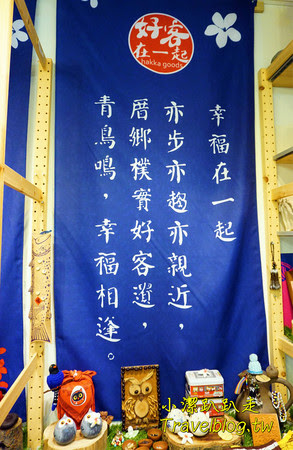 好客
在一起
hakka goods
幸福在一起
亦步亦趨亦親近，
厝鄉樸實好客遊，
青鳥鳴，幸福相逢。
小潔趴趴走
Travelblog.tw